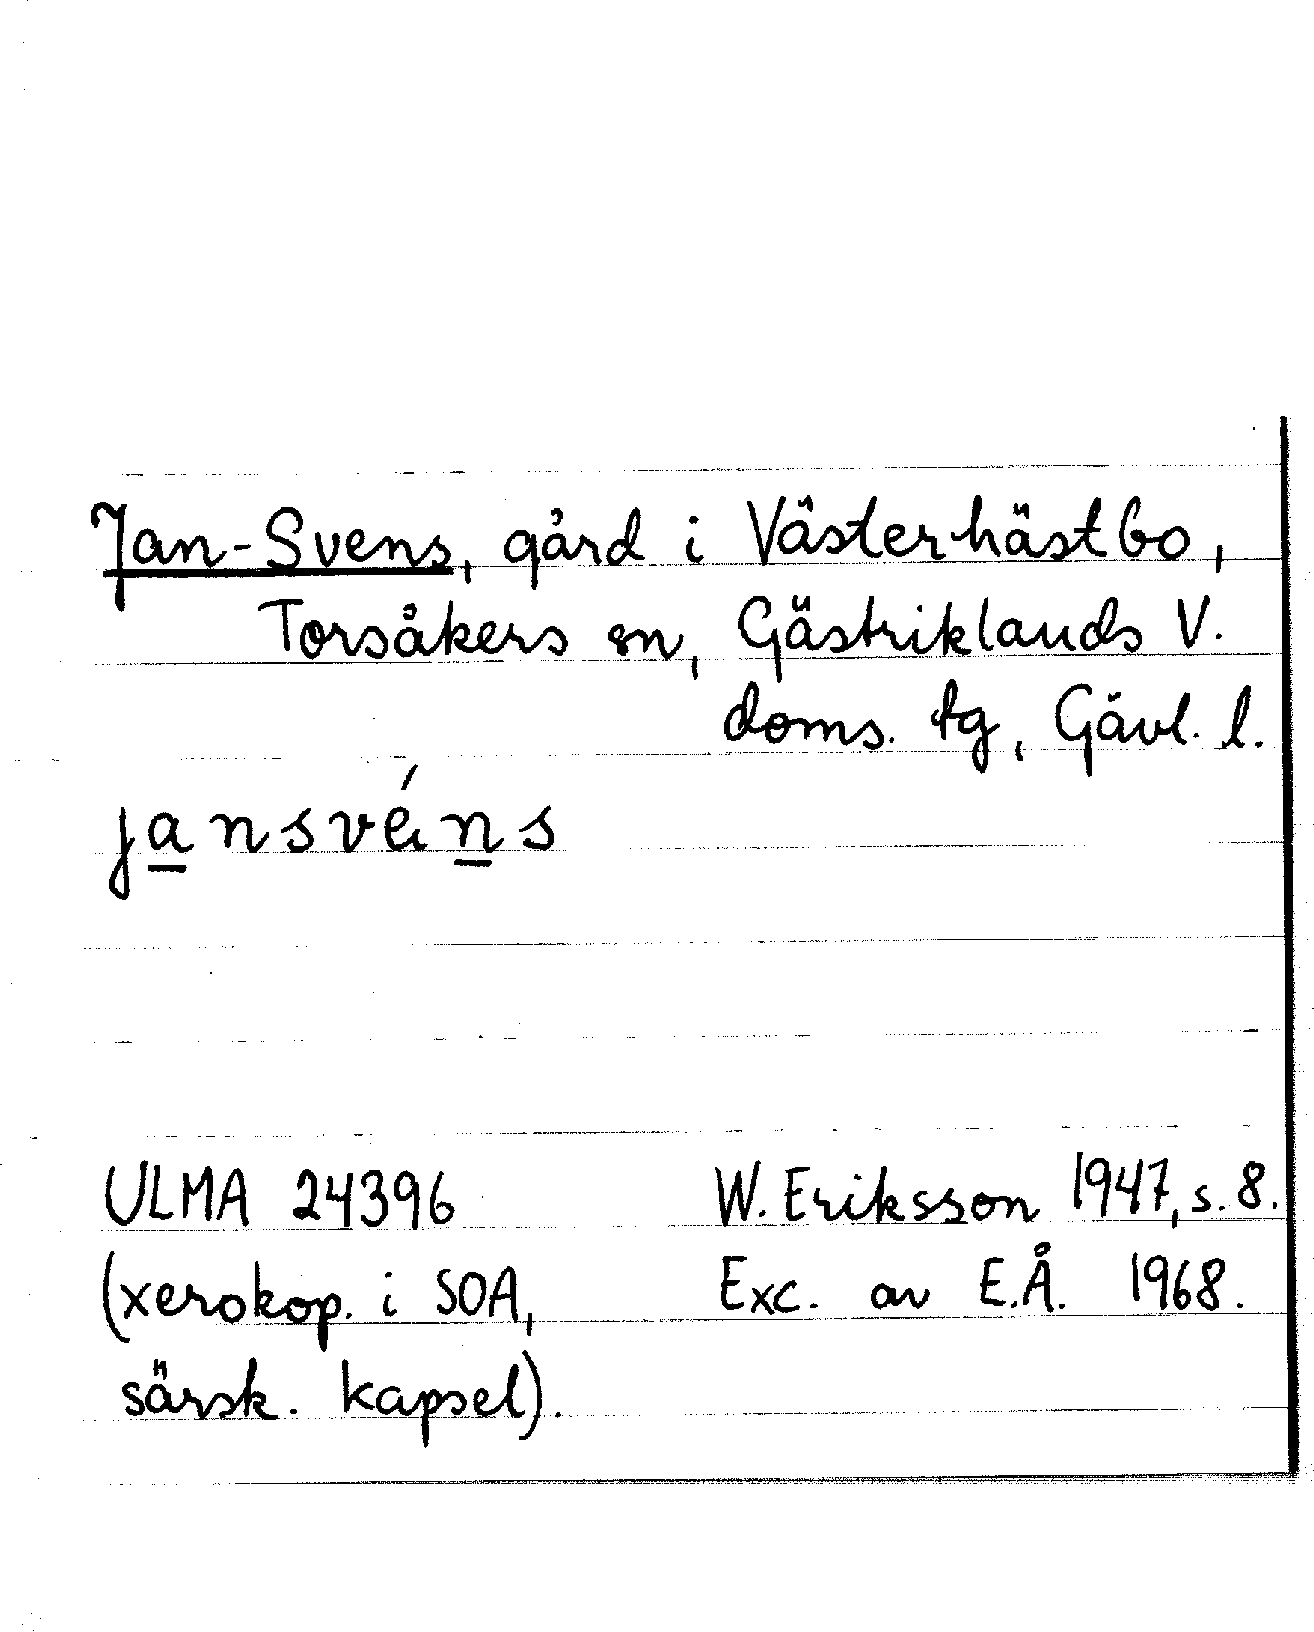 Jan-Svens, gård i Västerhästbo,
Torsåkers sn, Gästriklands V.
doms. tg, Gävl. l.
jansvéns
ULMA 24396
W. Eriksson 1947, s. 8.
(xerokop. i SOA,
Exc. av E.Å. 1968.
särsk. kapsel).